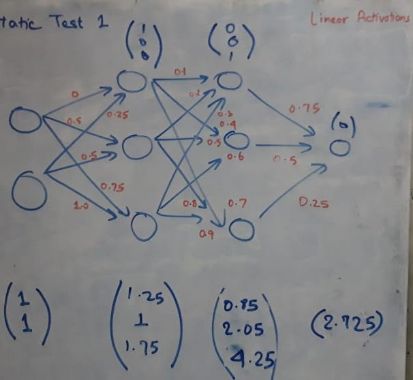 tatic Test 1
Linear Activations
(1 0 0)
(0 0 1)
(0)
0
0.25
0.5
0.5
0.75
1.0
0.1
0.2
0.3
0.4
0.5
0.6
0.8
0.7
0.9
0.75
0.5
0.25
(1 1)
(1.25 1 1.75)
(0.85 2.05 4.25)
(2.725)